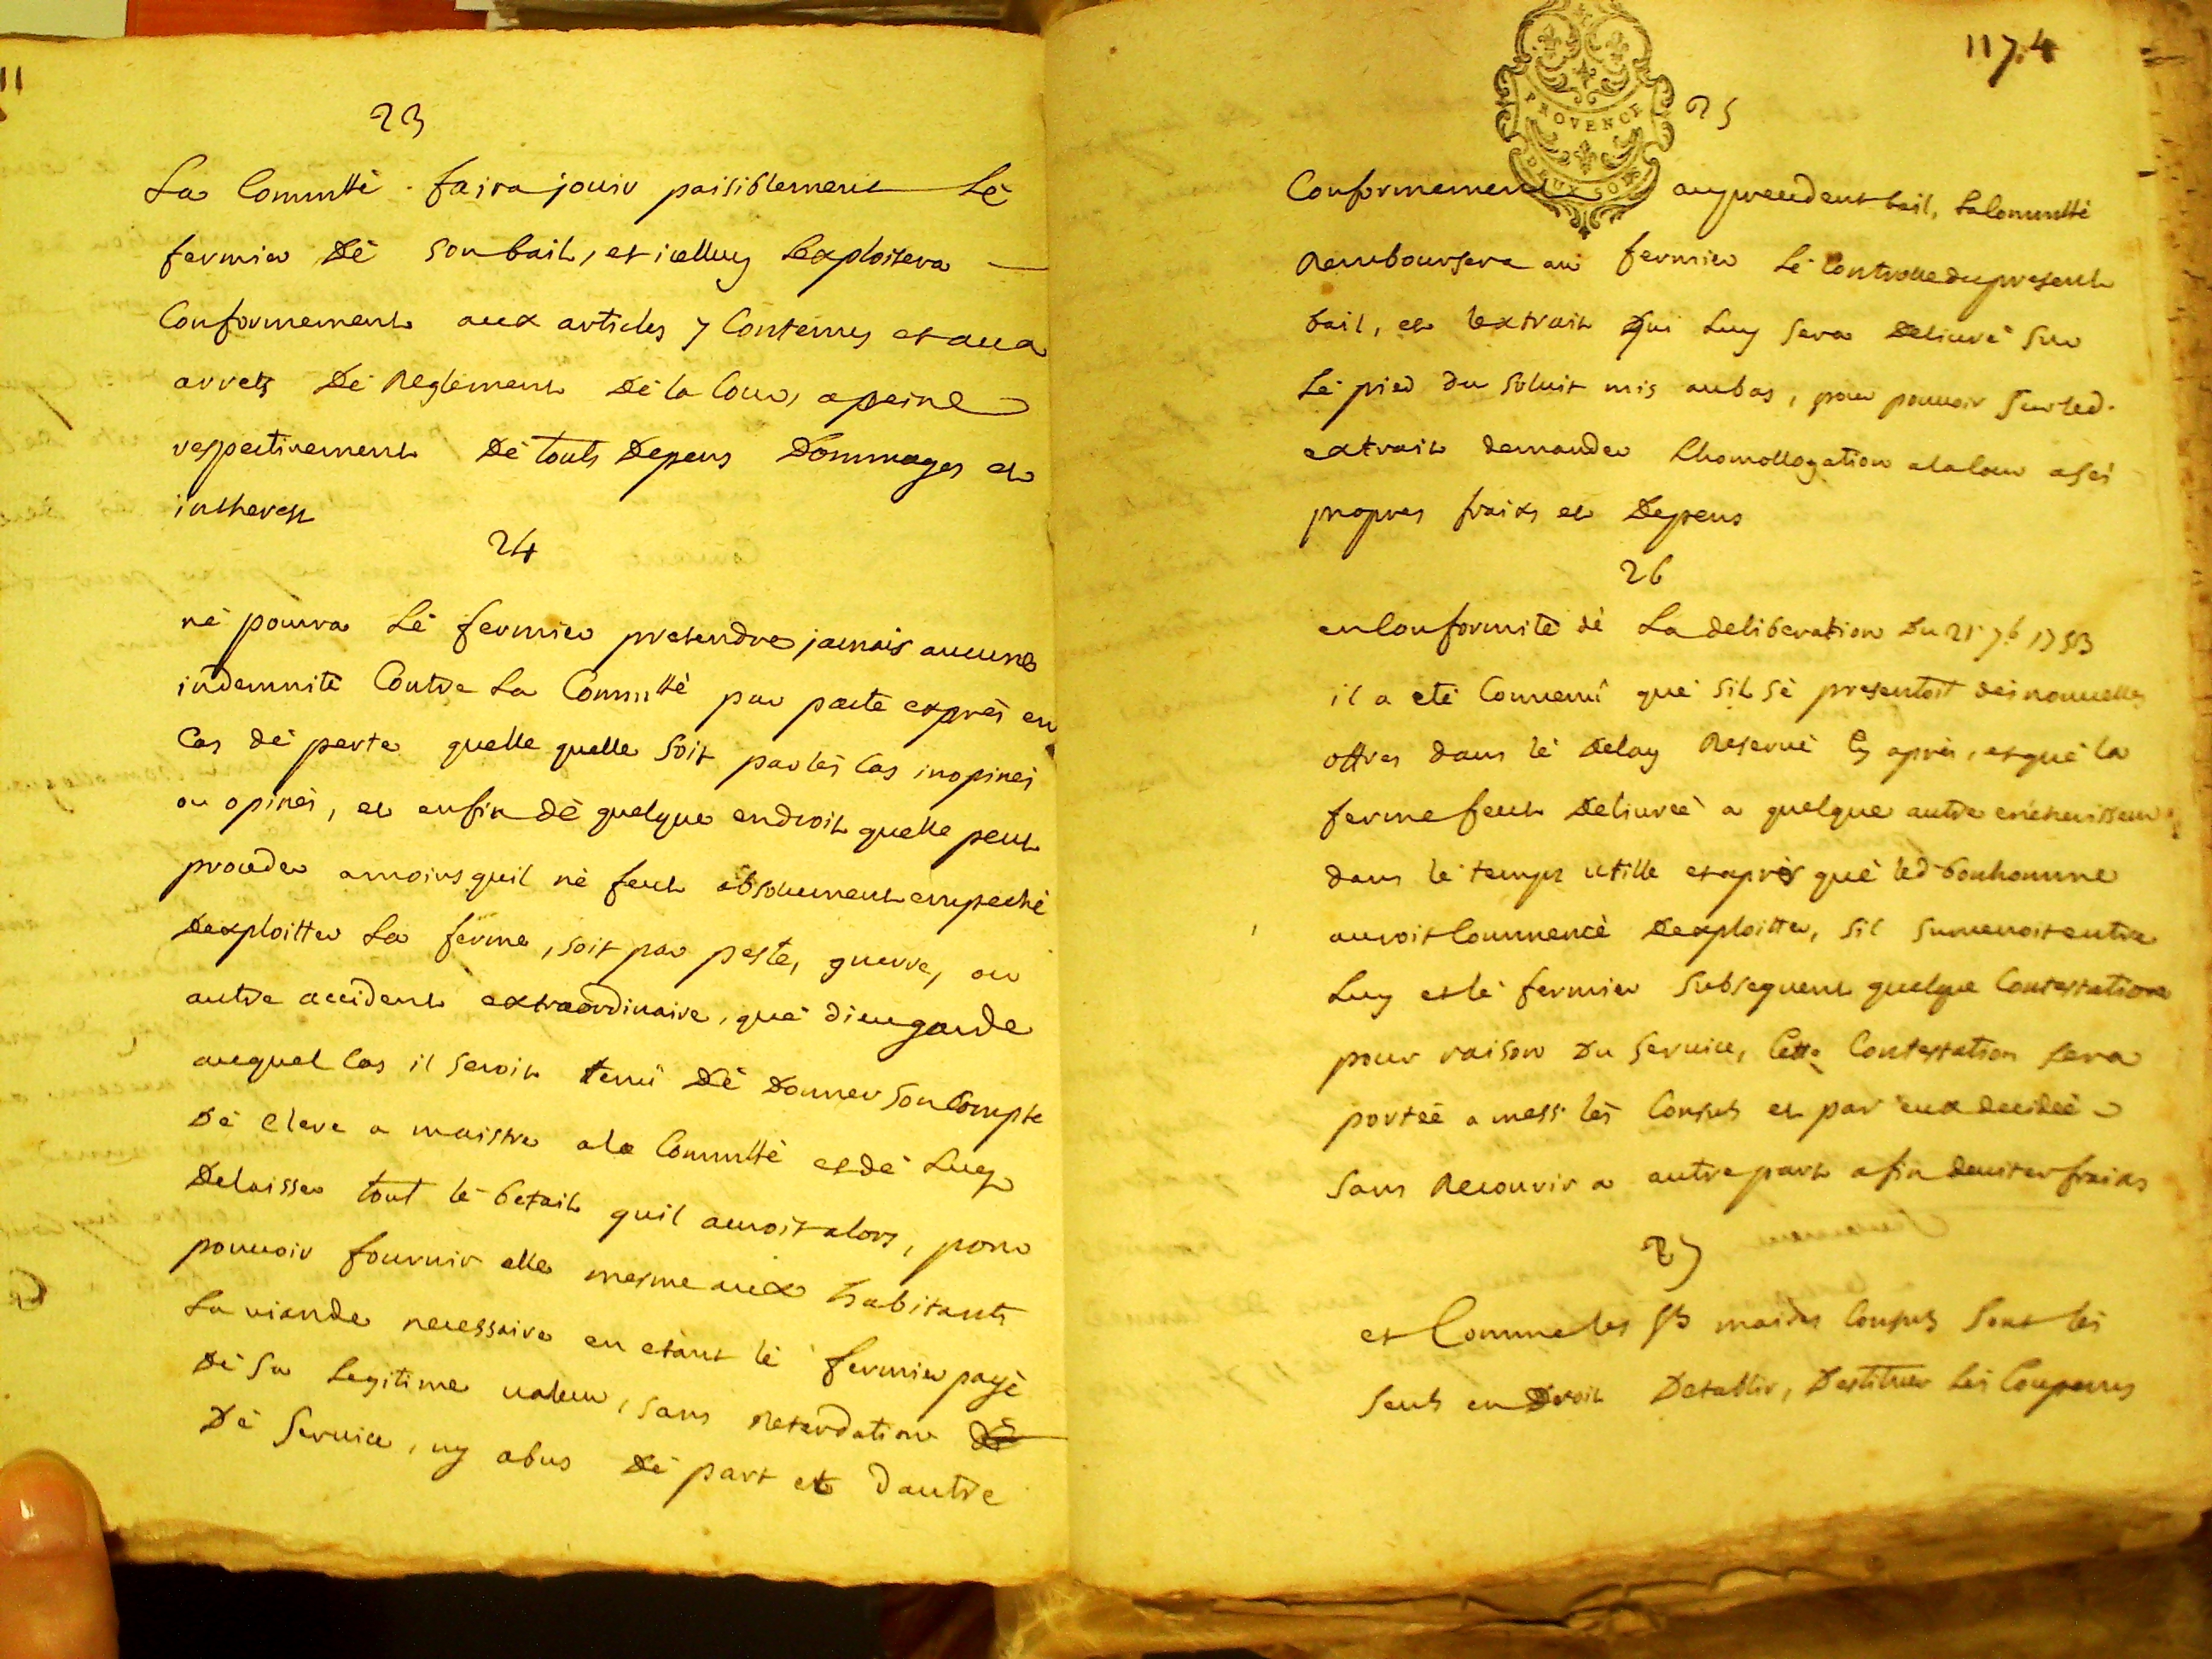 23
La Commtté faira jouir paisiblement Lé
fermier Dé son bail, et icelluy Lexploitera
Conformement aux articles y Contenus et aux
arrets Dé Reglement Dé la Cour, a peine
respectivement Dé touts Depens Dommages et
intherest
24
né pourra Lé fermier pretendre jamais aucune
indemnité Contre La Commtté par pacte exprés en
Cas dé perte quelle quelle soit par lés Cas inopinés
ou opinés, et enfin dé quelque endroit quelle peut
proceder amoins quil né feut absolument empeché
Dexploitter La ferme, soit par peste, guerre, ou
autre accident extraordinaire, qué dieu garde
auquel Cas il seroit tenu Dé Donner son Compte
Dé Clerc a maistre a la Commtté et dé Luy
Delaisser tout lé betail quil auroit alors, pour
pouuoir fournir elle mesme aux habitants
La uiande necessaire en etant lé fermier payé
Dé sa Legitime ualeur, sans Retardation
Dé Seruice, ny abus Dé part et dautre
117.4
PROVENCE
DEUX SOLS
25
Conformement au precedent bail, La Commtté
Remboursera au fermier Lé Controlle du present
bail, et lextrait qui Luy sera Deliuré sur
Lé pied du soluit mis au bas, pour pouuoir sur led.
extrait demander Lhomollogation a la Cour a sés
propres fraixs et Depens
26
en Conformité dé La deliberation Du 21 7b 1753
il a eté Conuenu qué sil sé presentoit dés nouuelles
offres dans lé Delay Reserué Cy aprés, et qué la
ferme feut Deliureé a quelque autre encherisseur
dans lé temps utille et aprés qué led bonhomme
auroit Commencé Dexploitter, sil suruenoit entre
Luy et lé fermier subsequent quelque Contestation
pour raison Du seruice, Cette Contestation sera
porteé a messrs lés Consuls et par eux decideé
sans Recourir a autre part afin deuiter fraixs
27
et Comme les srs maires Consuls sont lés
seuls en Droit Detablir, Destituer Lés Coupeurs